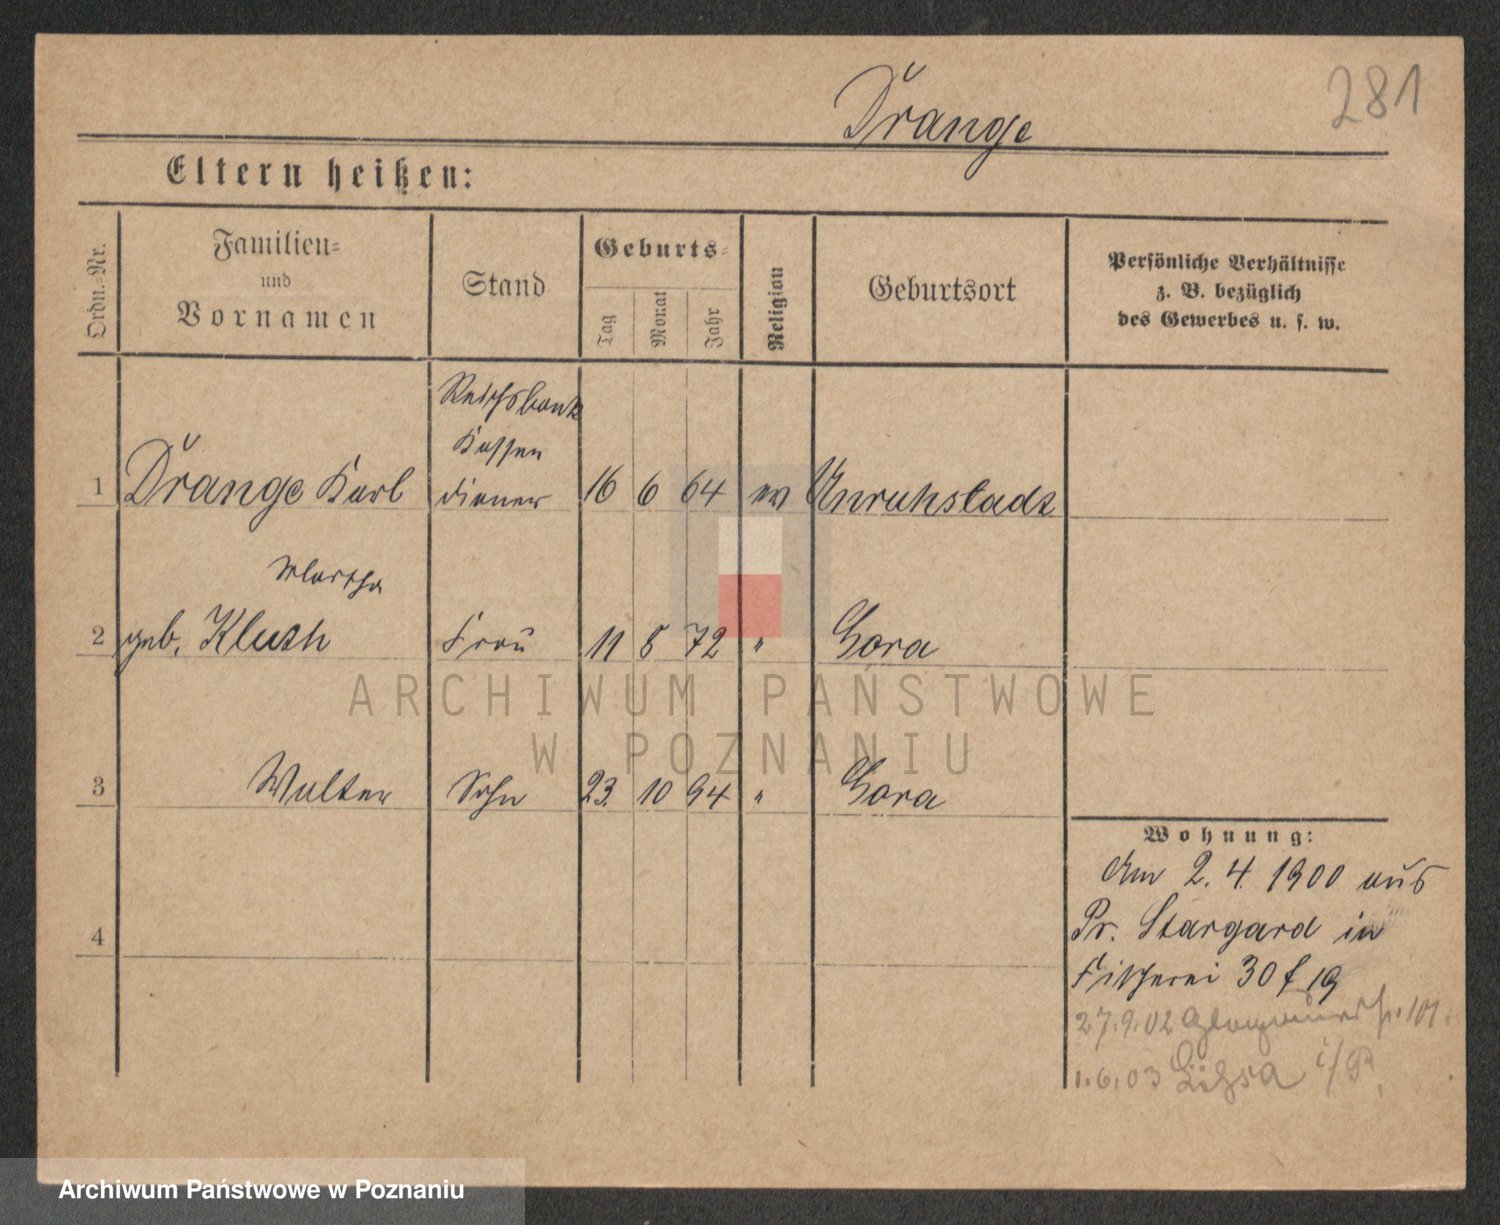 281
Drange
Eltern heißen:
Ordn.-Nr.
Familien-
und
Vornamen
Stand
Geburts-
Tag
Monat
Jahr
Religion
Geburtsort
Persönliche Verhältnisse
z. B. bezüglich
des Gewerbes u. s. w.
Reichsbank
Kassen
1 Drange Karl diener 16 6 64 ev Unruhstadt
Martha
2 geb. Kluth Frau 11 8 72 " Gora
3 Walter Sohn 23. 10 94 " Gora
4
Wohnung:
Am 2. 4. 1900 aus
Pr. Stargard in
Fischerei 30 f 19
27.9.02 101.
1.6.03 Lissa i/P.
ARCHIWUM PAŃSTWOWE
W POZNANIU
Archiwum Państwowe w Poznaniu